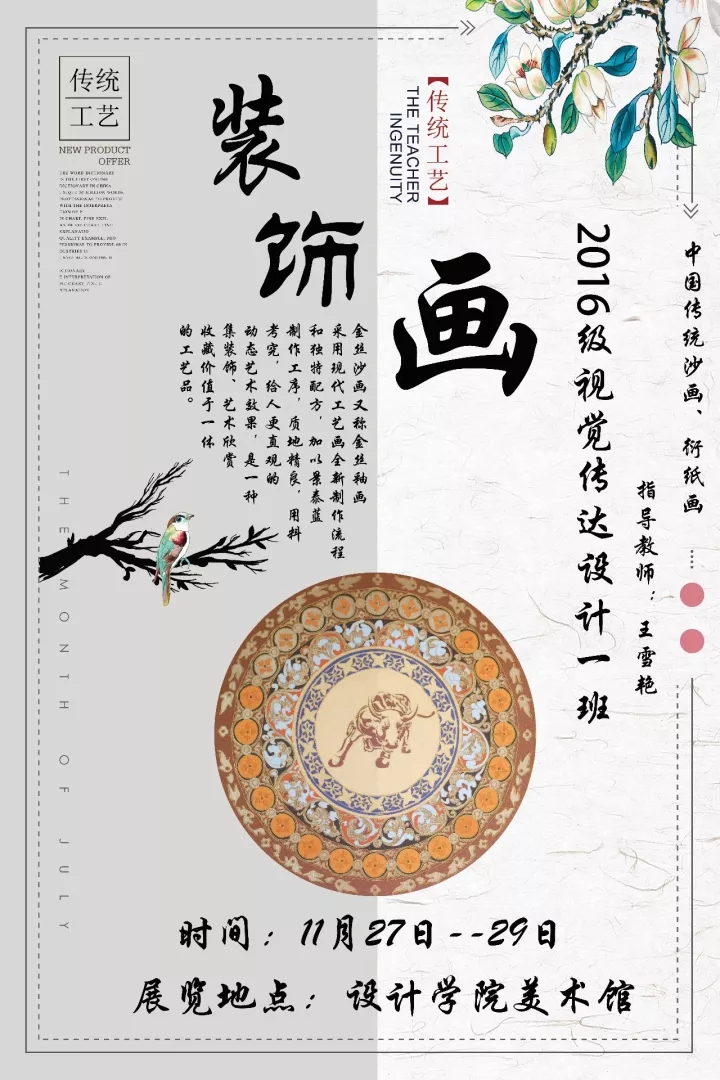 传统
工艺
NEW PRODUCT
OFFER
THE WORD DICTIONARY
IS THE FIRST ONLINE
DICTIONARY IN CHINA
WITH THE INTERPRETA
装饰画
【传统工艺】
THE TEACHER
INGENUITY
中国传统沙画、衍纸画
2016级视觉传达设计一班
指导教师：王雪艳
金丝沙画又称金丝釉画
采用现代工艺画全新制作流程
和独特配方，加以景泰蓝
制作工序，质地精良，用料
考究，给人更直观的
动态艺术效果，是一种
集装饰、艺术欣赏
收藏价值于一体
的工艺品。
THE MONTH OF JULY
时间：11月27日--29日
展览地点：设计学院美术馆